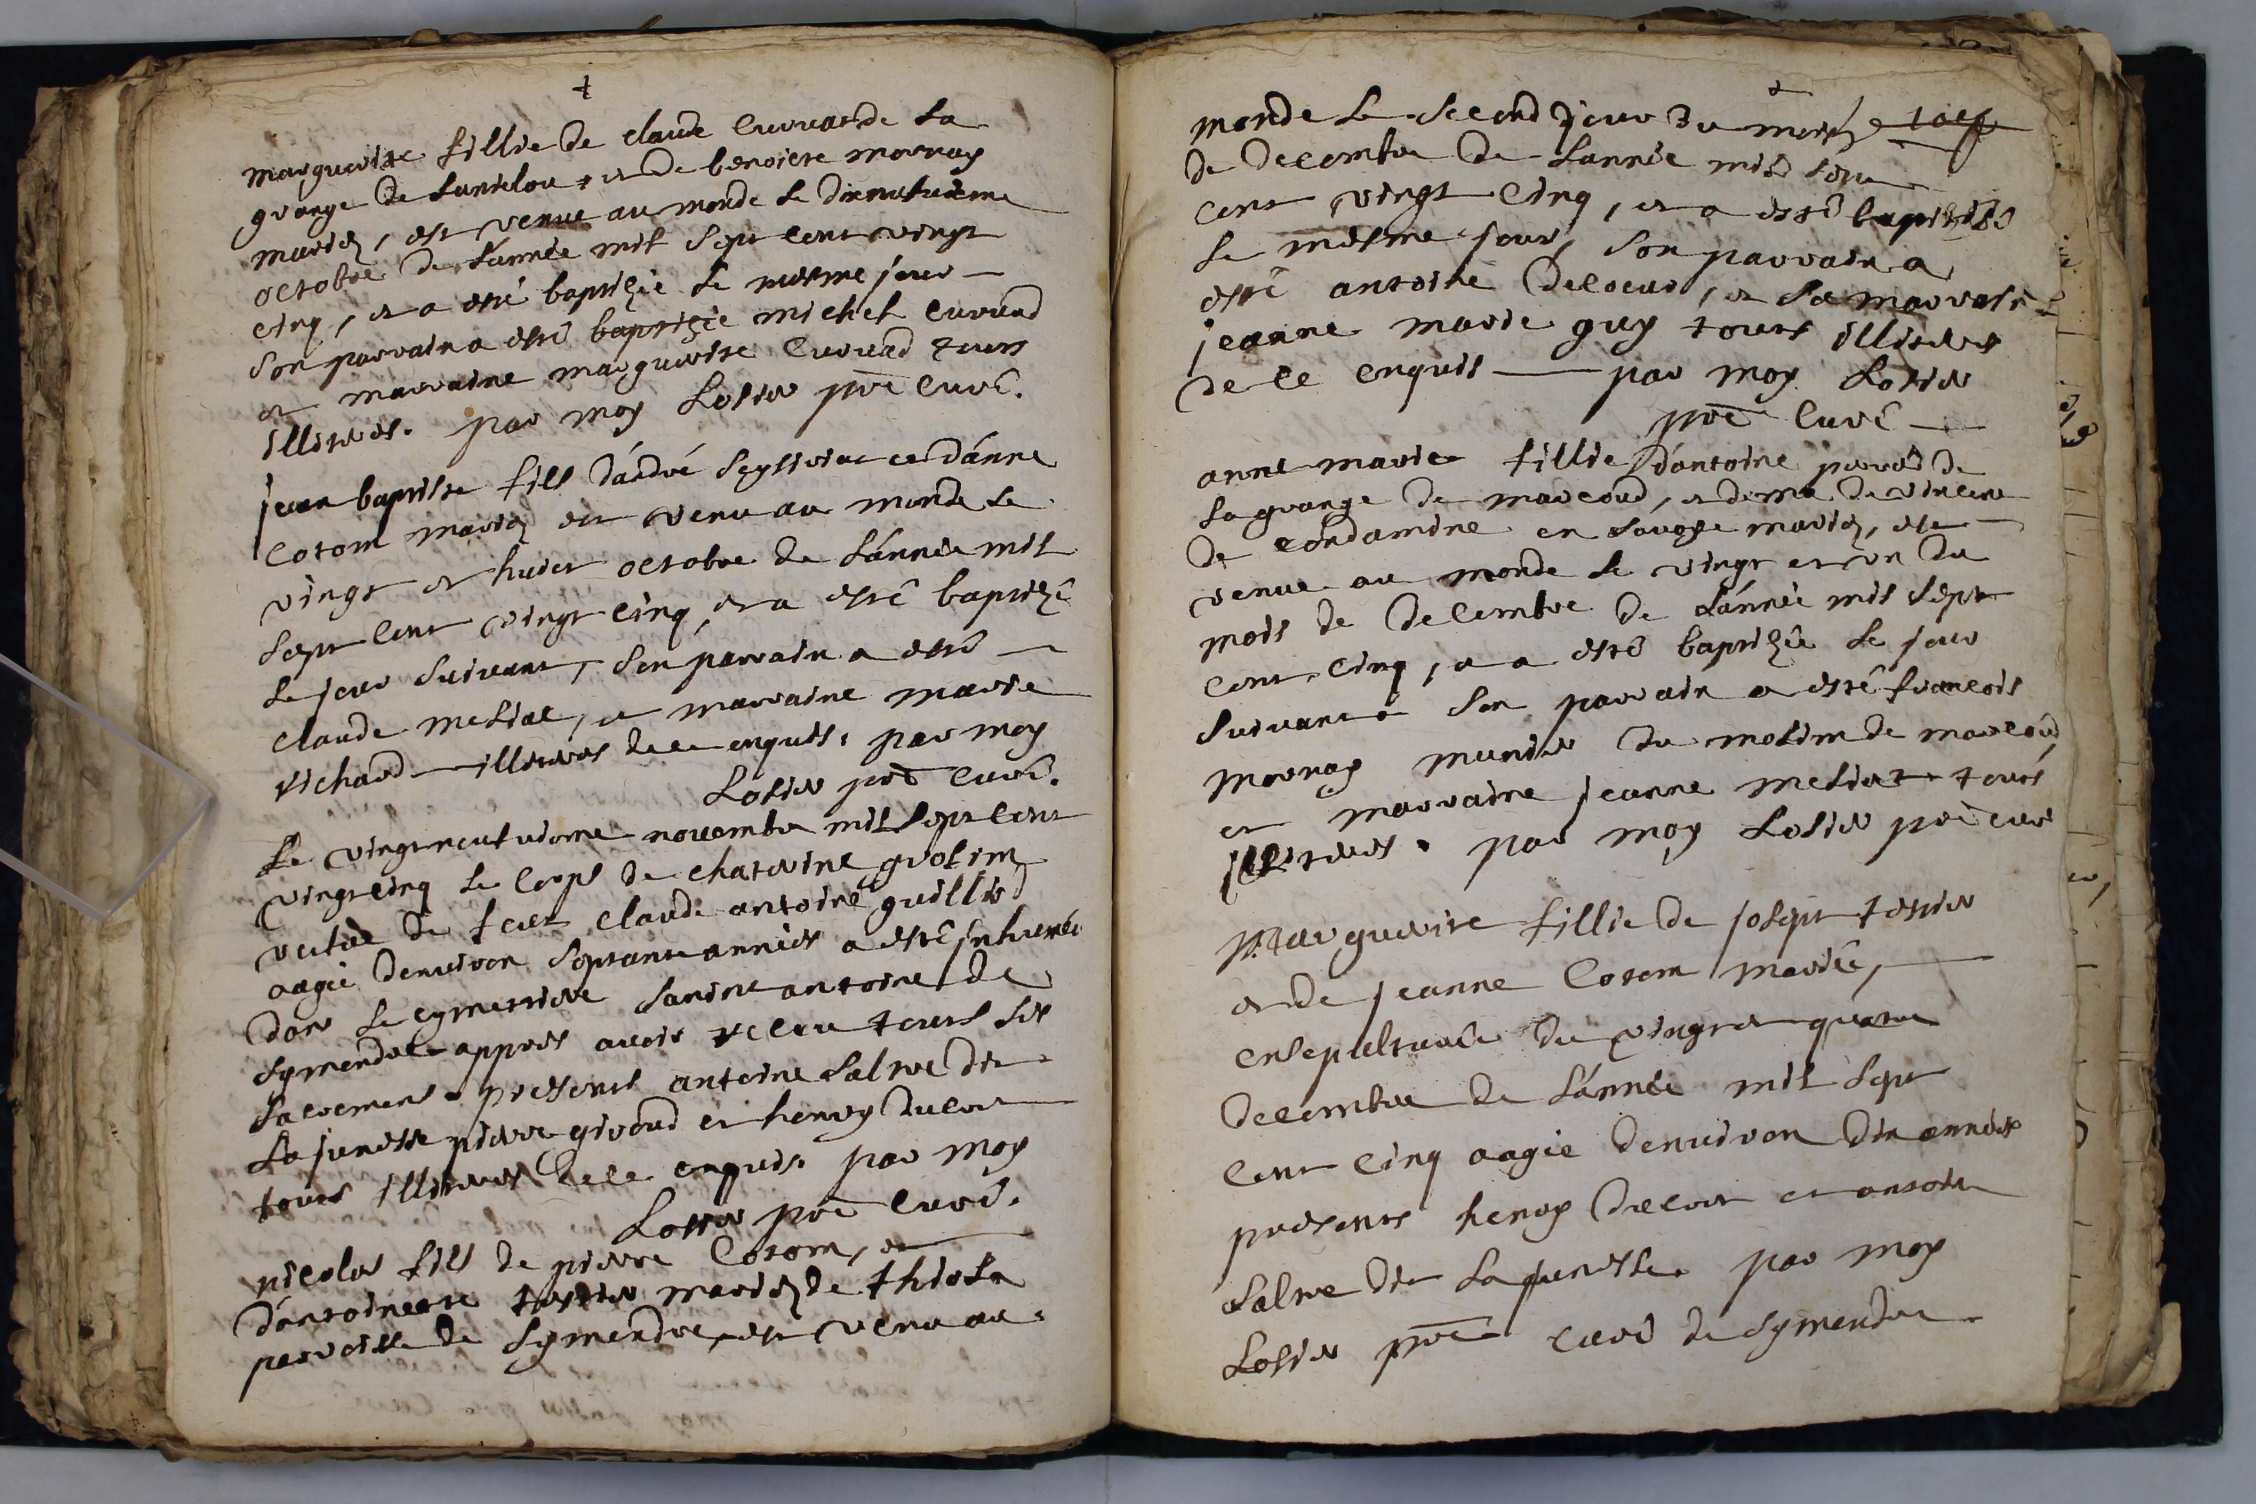 +
marguerite fillie de claude Evrard de La
grange de Lantelou et de benoiete mornay
mariez, est venue au monde le dixneufvieme
octobre de L'année mil sept cent vingt
cinq, et a esté baptizée le mesme jour
Son parrain a esté baptizée michel Evrard
et marraine marguerite Evrard tous
illiteres. par moy Losier pre Curé.
jean baptiste fils d'andré Seyssiriat et d'anne
Cotom mariez est venu au monde le
vingt et huict octobre de L'année mil
Sept Cent vingt cinq, et a esté baptizé
Le jour Suivant, Son parrain a esté
claude meliat, et marraine marie
richard illiteres de ce enquis. par moy
Losier pre Curé.
Le vingtneufvieme novembre mil Sept Cent
vingtcinq le Corps de chaterine grolim
veufve de feu claude antoine guillio
aagée denviron Septante années a esté inhumée
dans le cymettiere Sainct antoine de
Symendre appres avoir receu touts Ses
Sacremens. presents antoine Salme dit
La junesse pierre giroud et henry Ducort
touts illiteres de ce enquis. par moy
Losier pre Curé.
nicolas fils de pierre Cotom, et
d'antoinette tessier mariez de thiola
parroisse de Symendre, est venu au
+
monde Le Second jour du mois
de Decembre de Lannée mil Sept
Cent vingt Cinq, et a esté baptizé
le mesme jour, Son parrain a
esté antoine Decoeur, et Sa marraine
jeanne marie guy touts illiteres
de ce enquis par moy Losier
pre Curé
anne marie fillie d'antoine perrod de
La grange de marcoud, et de vincent
de Condamine en Savoye mariez, est
venue au monde le vingt et un du
mois de Decembre de L'année mil Sept
Cent Cinq, et a esté baptizée le jour
Suivant Son parrain a esté francois
Mornay munier du molim de marcoud,
et marraine jeanne meliat touts
illiteres. par moy Losier pre Curé
Marguerite fillie de josept tessier
et de jeanne Cotom mariés,
ensepulturée du vingt et quatre
Decembre de L'année mil Sept
Cent Cinq aagée denviron dix années
presents henry Ducort et antoine
Salme dit La junesse. par moy
Losier pre Curé de Symendre